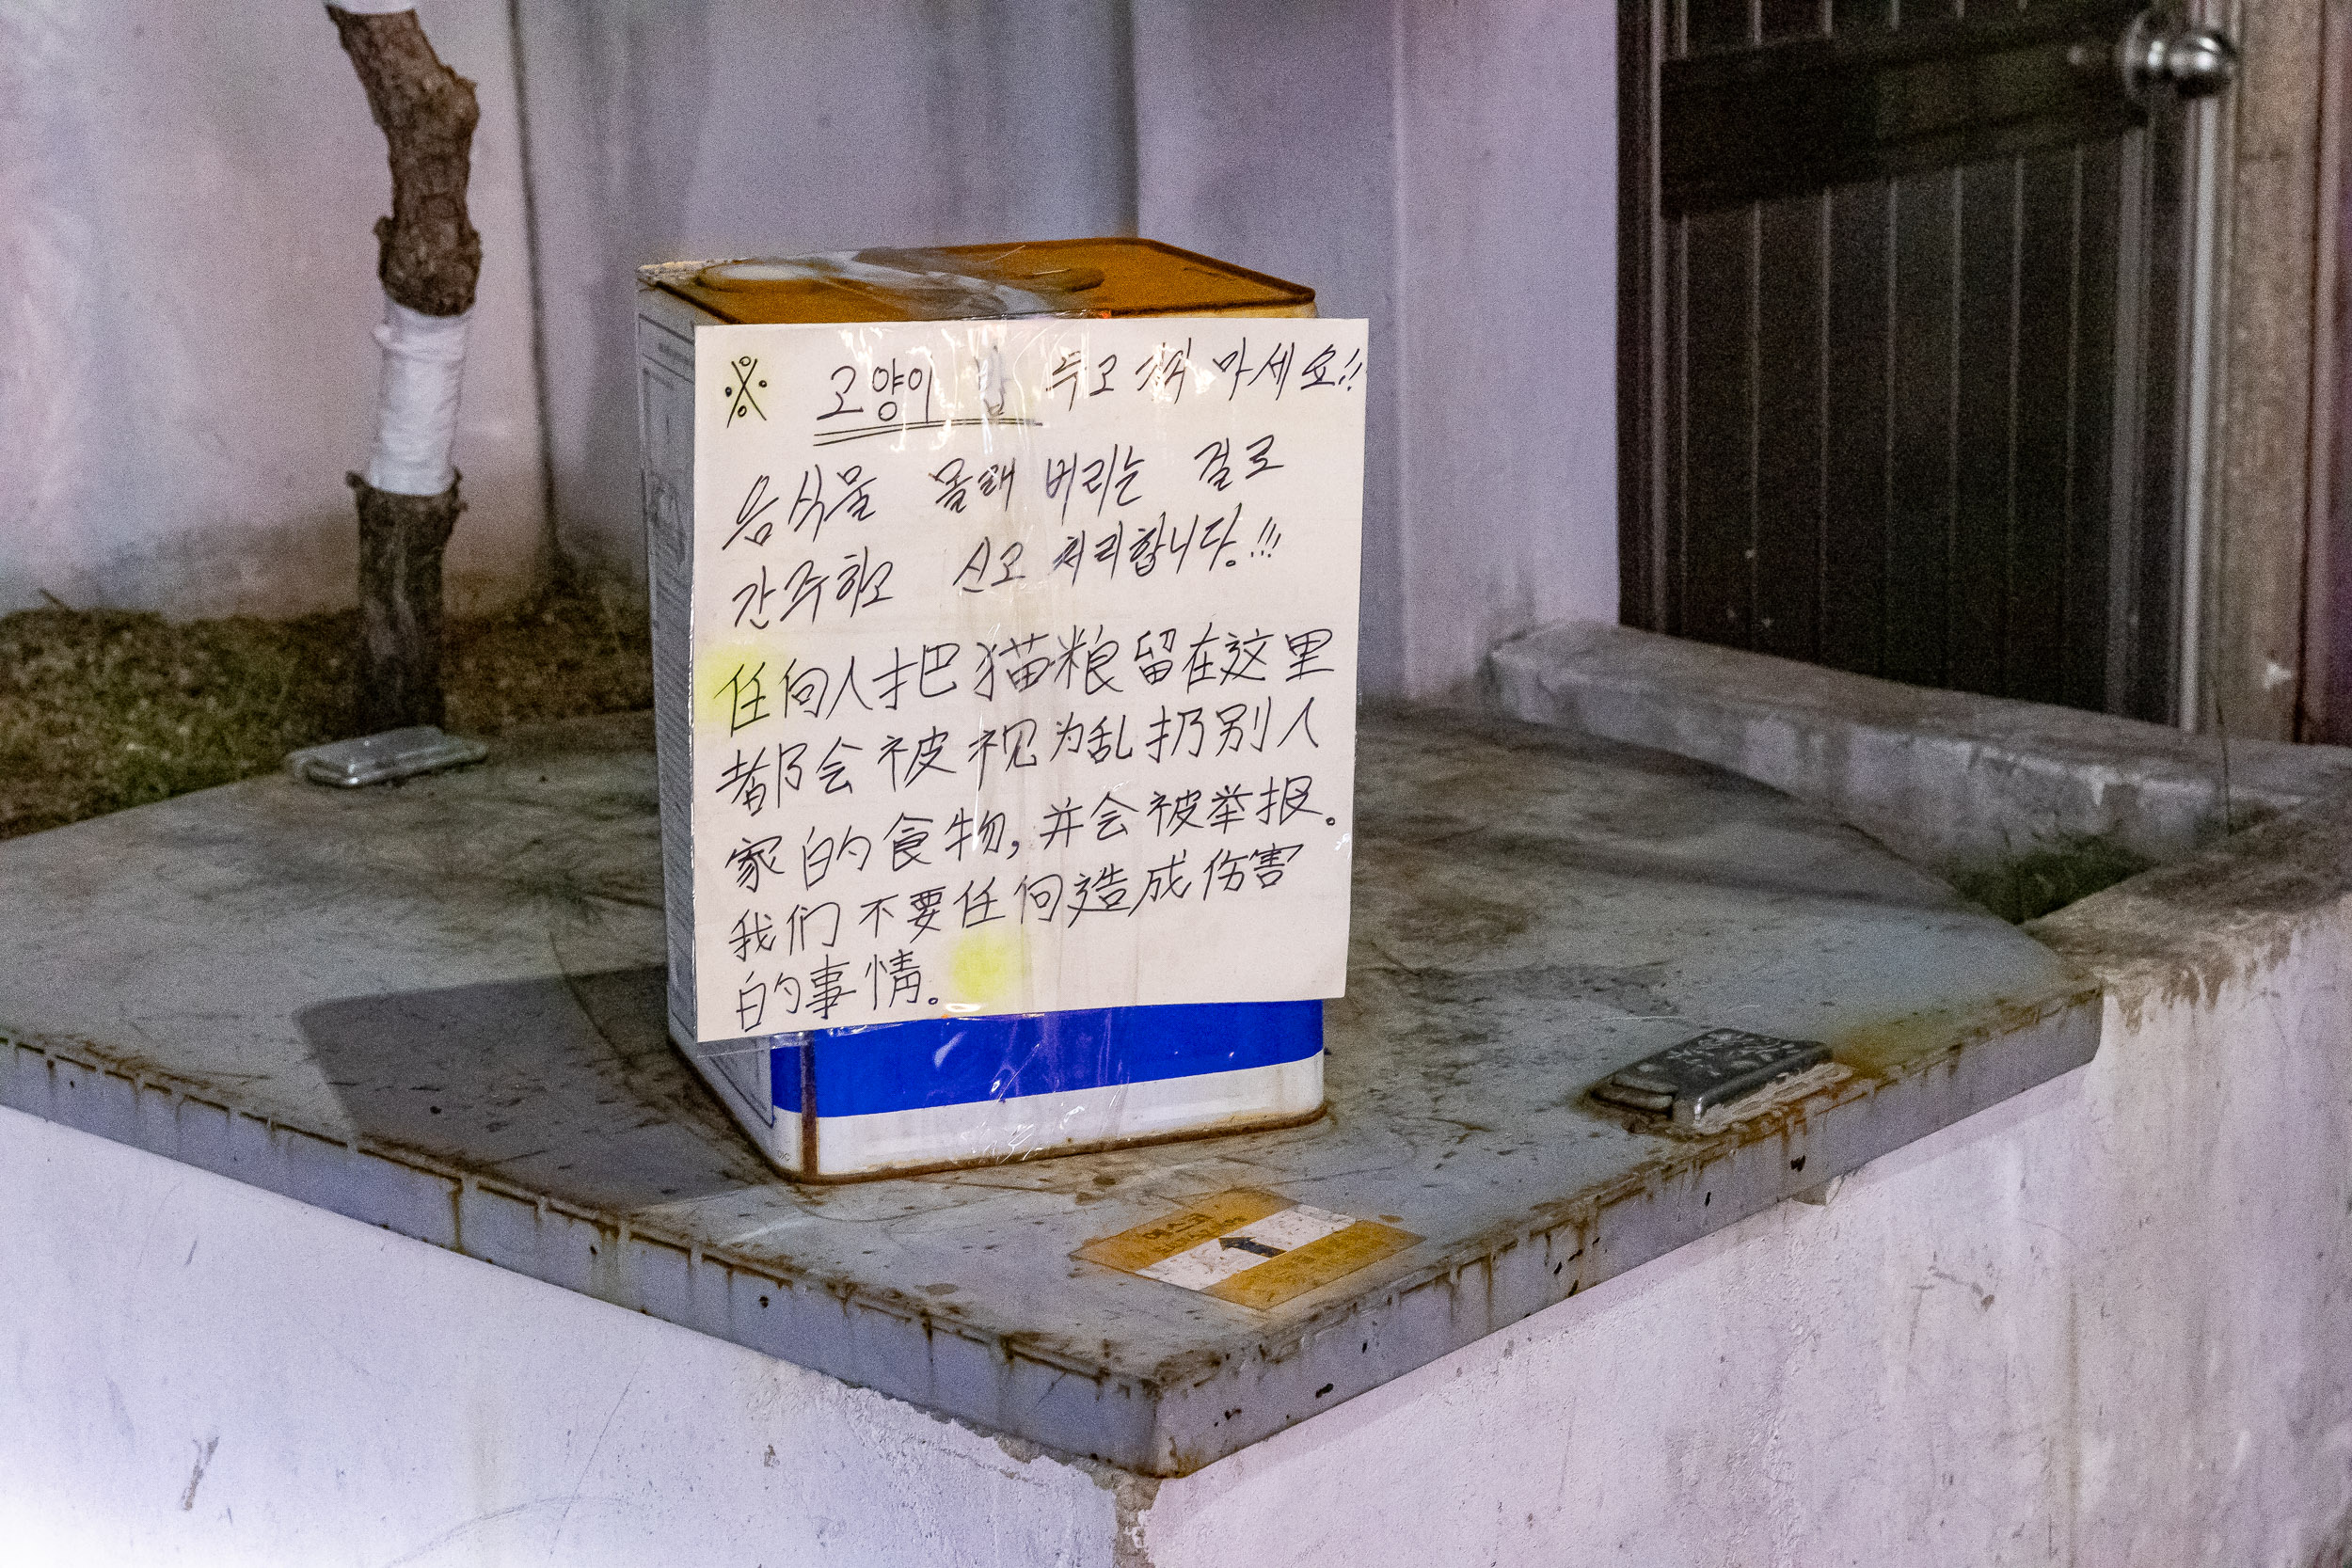 ※ 고양이 밥 두고 가지 마세요!!
음식물 몰래 버리는 걸로
간주하고 신고 처리합니다.!!!
任何人把猫粮留在这里
都会被视为乱扔别人
家的食物,并会被举报。
我们不要任何造成伤害
的事情。